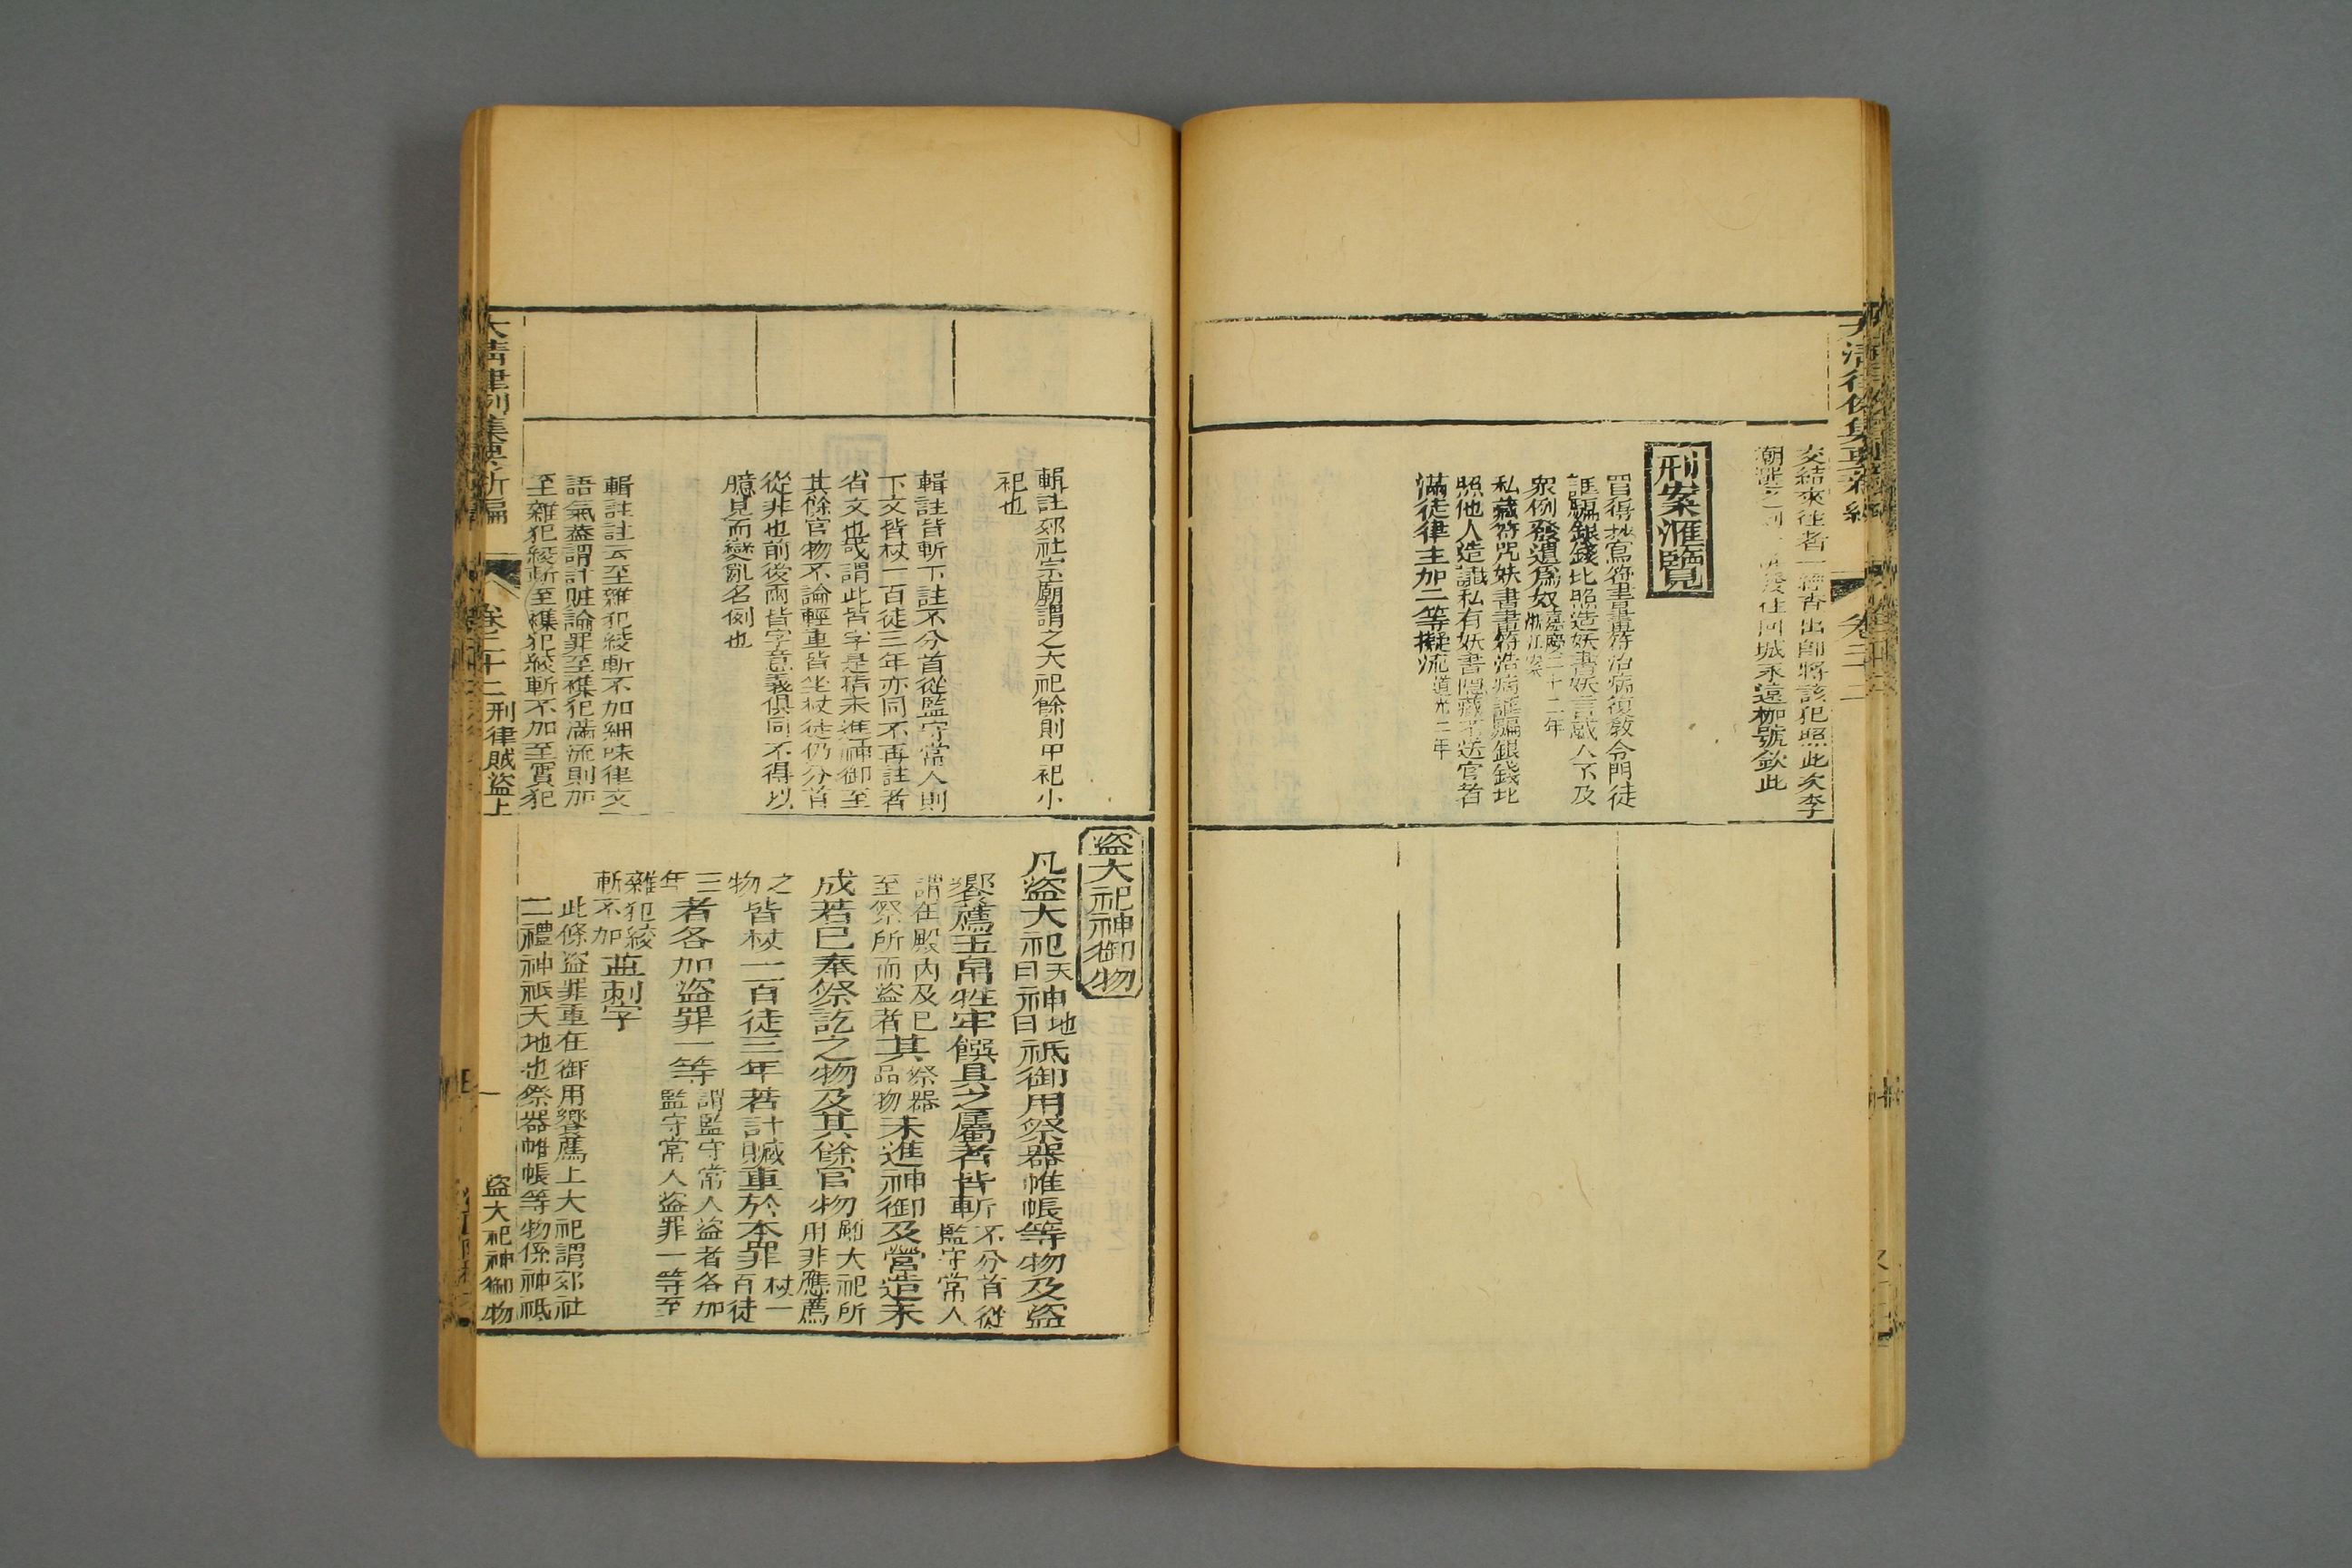 交結來往者一併查出卽將該犯照此次李
潮
往回城永遠枷號欽此
刑案滙覽
買得抄寫符書畫符治病復教令門徒
誆騙銀錢比照造妖書妖言惑人不及
衆例發遣爲奴嘉慶二十二年浙江案
私藏符咒妖書畫符治病誆騙銀錢比
照他人造讖私有妖書隱藏不送官者
滿徒律主加二等擬流道光二年
輯註郊社宗廟謂之大祀餘則中祀小
祀也
輯註皆斬下註不分首從監守常人則
下文皆杖一百徒三年亦同不再註者
省文也或謂此皆字是指未進神御至
其餘官物不論輕重皆坐杖徒仍分首
從非也前後兩皆字意義俱同不得以
臆見而變亂名例也
輯註註云至雜犯絞斬不加細味律文
語氣蓋謂計贓論罪至襍犯滿流則加
至雜犯絞斬至襍犯絞斬不加至實犯
盜大祀神御物
凡盜大祀天曰神地曰祇御用祭器帷帳等物及盜
饗薦玉帛牲牢饌具之屬者皆斬不分首從監守常人
謂在殿內及已至祭所而盜者其祭器品物未進神御及營造未
成若已奉祭訖之物及其餘官物卽大祀所用非應薦
之物皆杖一百徒三年若計贓重於本罪杖一百徒
三年者各加盜罪一等謂監守常人盜者各加監守常人盜罪一等至
雜犯絞斬不加並刺字
此條盜罪重在御用饗薦上大祀謂郊社
二禮神祇天地也祭器帷帳等物係神祇
大清律例集要新編
卷二十二刑律賊盜上
一
盜大祀神御物